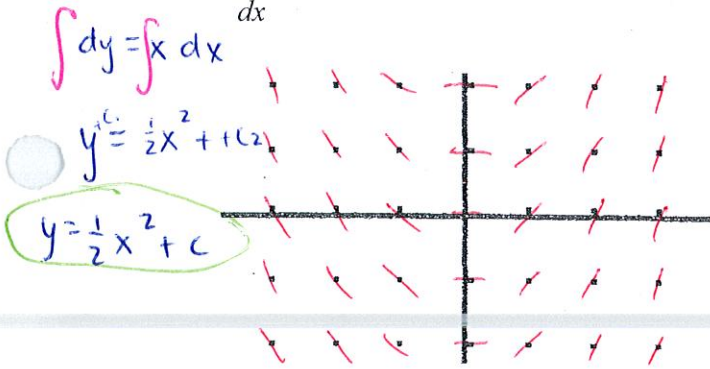 dx
∫dy = ∫x dx
y + C₁ = ½x² + + C₂
y = ½x² + C